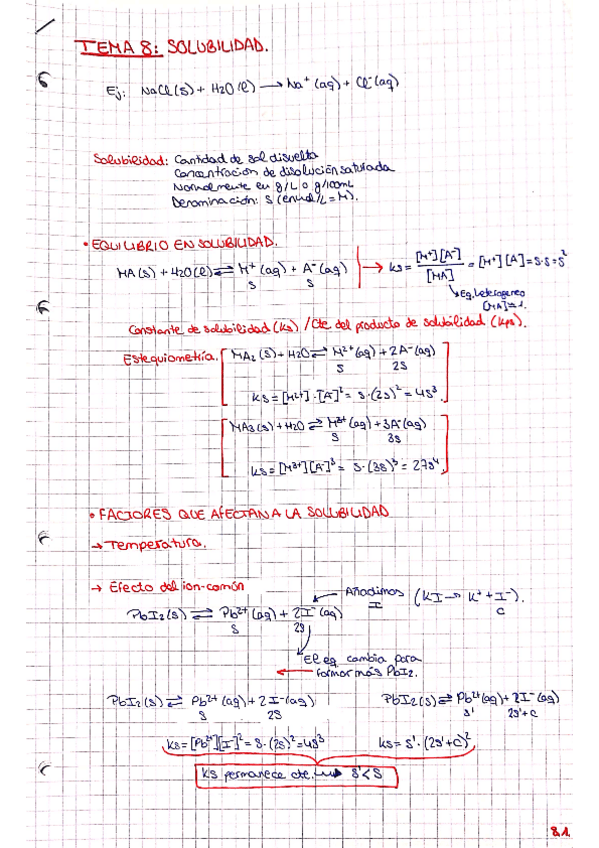 TEMA 8: SOLUBILIDAD.
Ej: NaCl(s) + H2O(l) → Na+(aq) + Cl-(aq)
Solubilidad: Cantidad de sal disuelta
Concentración de disolución saturada
Normalmente en g/L o g/100mL
Denominación: S (en mol/L = M).
• EQUILIBRIO EN SOLUBILIDAD.
MA(s) + H2O(l) ⇌ M+(aq) + A-(aq) → Ks = [M+][A-]/[MA] = [M+][A] = S·S = S²
S S
Eq. heterogéneo
[MA] = 1.
Constante de solubilidad (Ks) / Cte del producto de solubilidad (Kps).
Estequiometría. MA2(s) + H2O ⇌ M2+(aq) + 2A-(aq)
S 2S
Ks = [M2+]·[A-]² = S·(2S)² = 4S³
MA3(s) + H2O ⇌ M3+(aq) + 3A-(aq)
S 3S
Ks = [M3+][A-]³ = S·(3S)³ = 27S⁴
• FACTORES QUE AFECTAN A LA SOLUBILIDAD
→ Temperatura.
→ Efecto del ion-común
Añadimos I (KI → K+ + I-).
C
PbI2(s) ⇌ Pb2+(aq) + 2I-(aq)
S 2S
El eq. cambia para
formar más PbI2.
PbI2(s) ⇌ Pb2+(aq) + 2I-(aq) PbI2(s) ⇌ Pb2+(aq) + 2I-(aq)
S 2S S' 2S'+C
Ks = [Pb2+][I-]² = S·(2S)² = 4S³ Ks = S'·(2S'+C)²
Ks permanece cte. → S' < S
8.1.